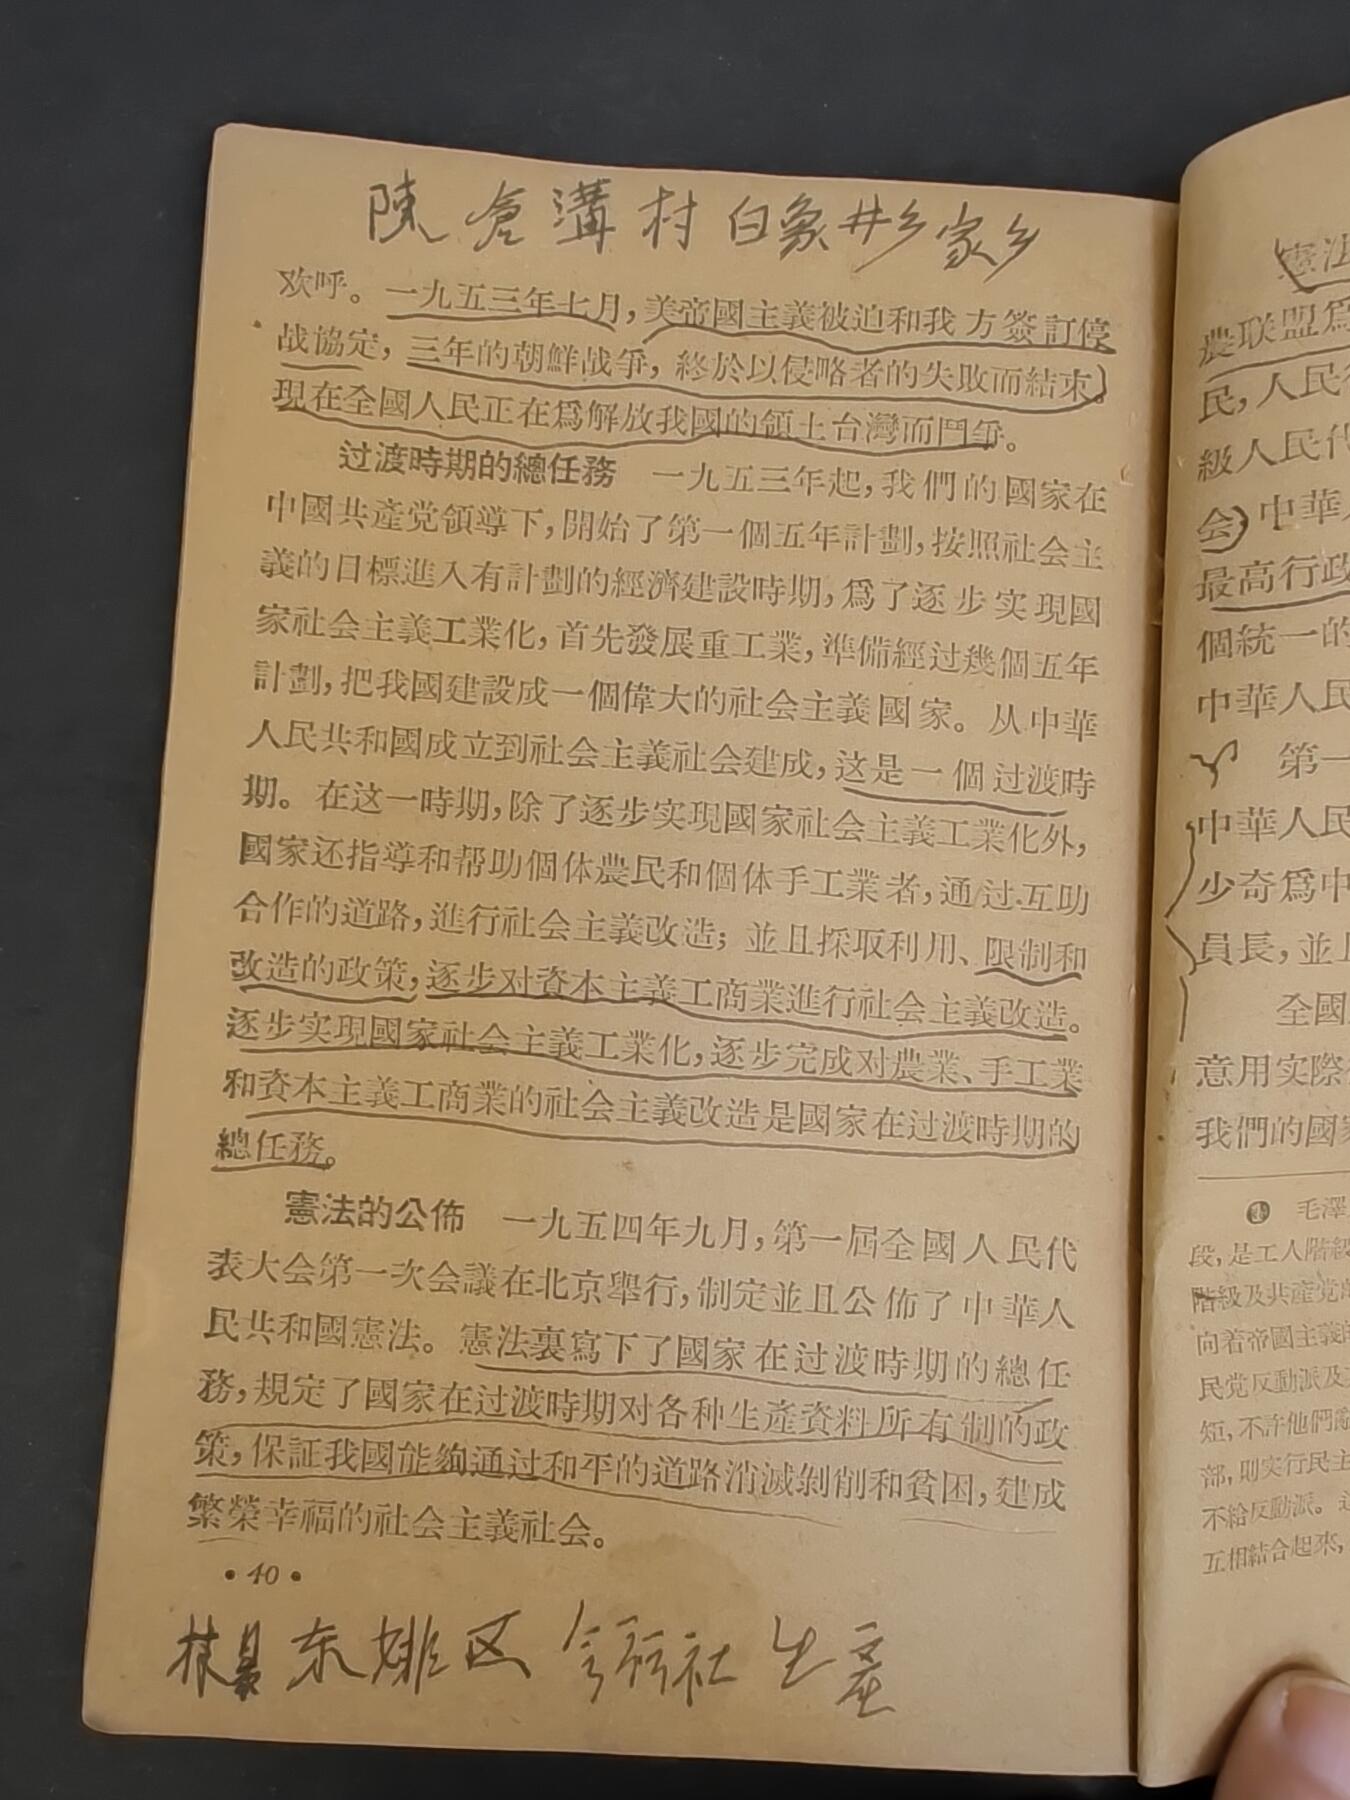 陳倉溝村 白象井乡 家乡
欢呼。一九五三年七月，美帝國主義被迫和我方簽訂停
战協定，三年的朝鮮战爭，終於以侵略者的失敗而結束。
現在全國人民正在爲解放我國的領土台灣而鬥爭。
过渡時期的總任務　一九五三年起，我們的國家在
中國共產党領導下，開始了第一個五年計劃，按照社会主
義的目標進入有計劃的經濟建設時期，爲了逐步实現國
家社会主義工業化，首先發展重工業，準備經过幾個五年
計劃，把我國建設成一個偉大的社会主義國家。从中華
人民共和國成立到社会主義社会建成，这是一個过渡時
期。在这一時期，除了逐步实現國家社会主義工業化外，
國家还指導和帮助個体農民和個体手工業者，通过互助
合作的道路，進行社会主義改造；並且採取利用、限制和
改造的政策，逐步对資本主義工商業進行社会主義改造。
逐步实現國家社会主義工業化，逐步完成对農業、手工業
和資本主義工商業的社会主義改造是國家在过渡時期的
總任務。
憲法的公佈　一九五四年九月，第一屆全國人民代
表大会第一次会議在北京舉行，制定並且公佈了中華人
民共和國憲法。憲法裏寫下了國家在过渡時期的總任
務，規定了國家在过渡時期对各种生產資料所有制的政
策，保証我國能夠通过和平的道路消滅剝削和貧困，建成
繁榮幸福的社会主義社会。
• 40 •
林县 东姚区 社 生產
憲法
農联盟爲
民，人民
級人民代
会）中華
最高行政
個統一的
中華人民
第一
中華人民
少奇爲中
員長，並且
全國
意用实際
我們的國家
❶ 毛澤
段，是工人階級
階級及共產党
向着帝國主義的
民党反動派及
短，不許他們
部，則实行民主
不給反動派。
互相結合起來，